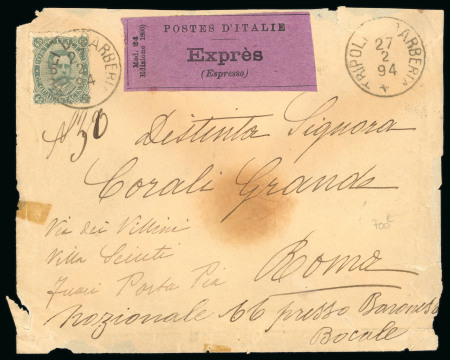 POSTES D'ITALIE
Mod. 24
Edizione 1890
Exprès
(Espresso)
TRIPOLI BARBERIA
27
2
94
Distinta Signora
Corali Grande
Via dei Villini
Villa Sciuti
fuori Porta Pia
Roma
700
Nazionale 66 presso Baronessa
Bocale